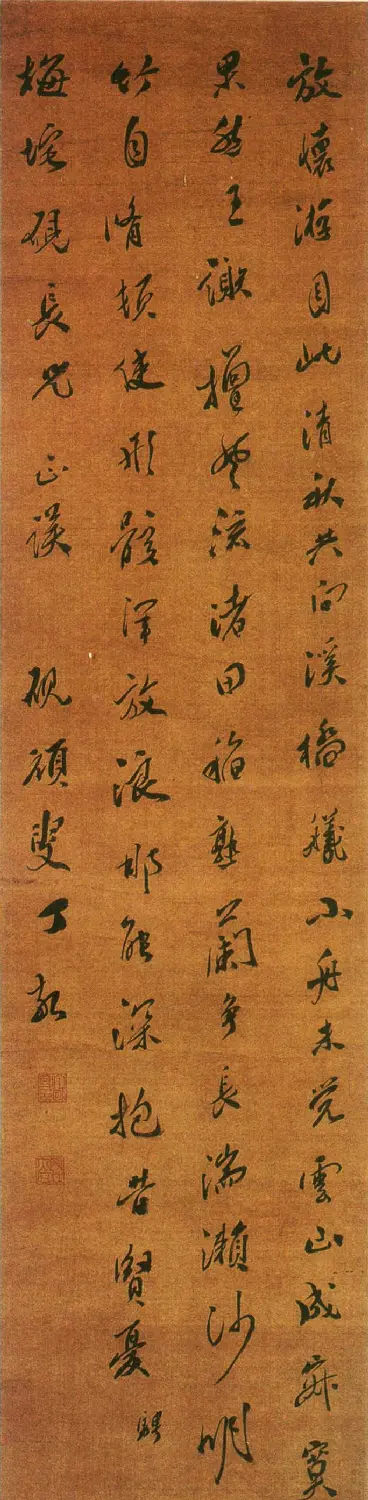 放懷游目此清秋共向溪橋艤小舟未覺雲山成寂寞
果然王謝擅風流渚田稻熟蘭争長湍瀨沙明
竹自脩頓使形骸渾放浪那能深抱昔賢憂
梅垞硯長兄正謬 硯碩叟丁敬